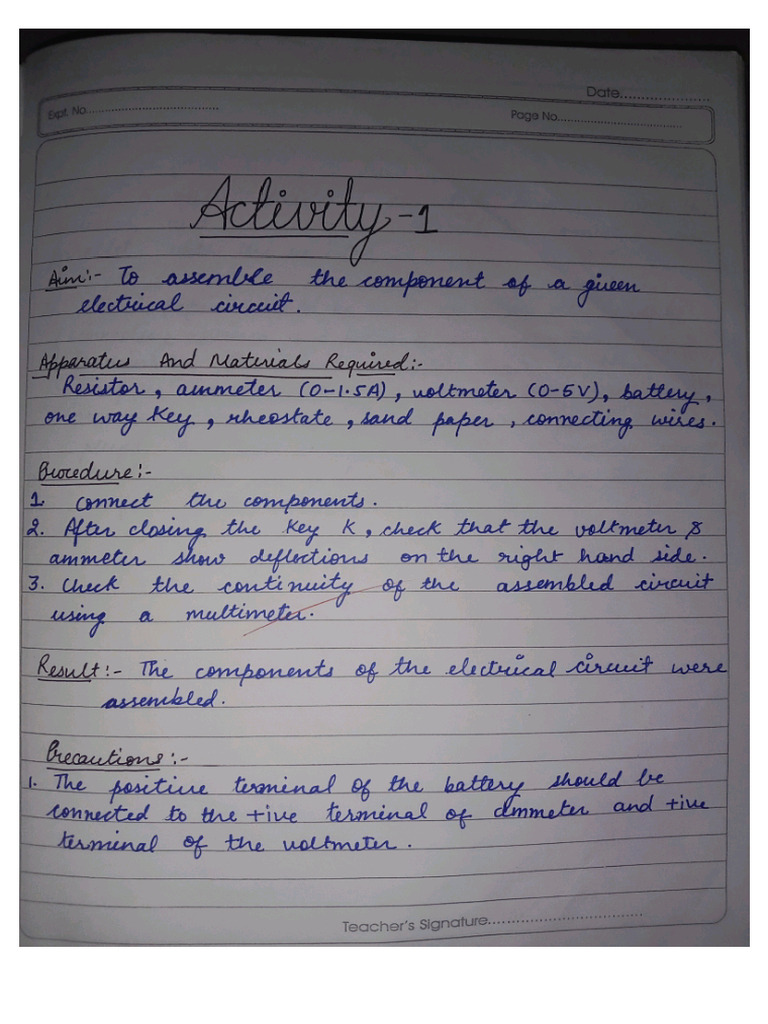 Date....................
Expt. No....................................
Page No..................................
Activity-1
Aim:- To assemble the component of a given
electrical circuit.
Apparatus And Materials Required:-
Resistor, ammeter (0-1.5A), voltmeter (0-5V), battery,
one way key, rheostate, sand paper, connecting wires.
Procedure:-
1. Connect the components.
2. After closing the key K, check that the voltmeter &
ammeter show deflections on the right hand side.
3. Check the continuity of the assembled circuit
using a multimeter.
Result:- The components of the electrical circuit were
assembled.
Precautions:-
1. The positive terminal of the battery should be
connected to the +ive terminal of ammeter and +ive
terminal of the voltmeter.
Teacher's Signature....................................